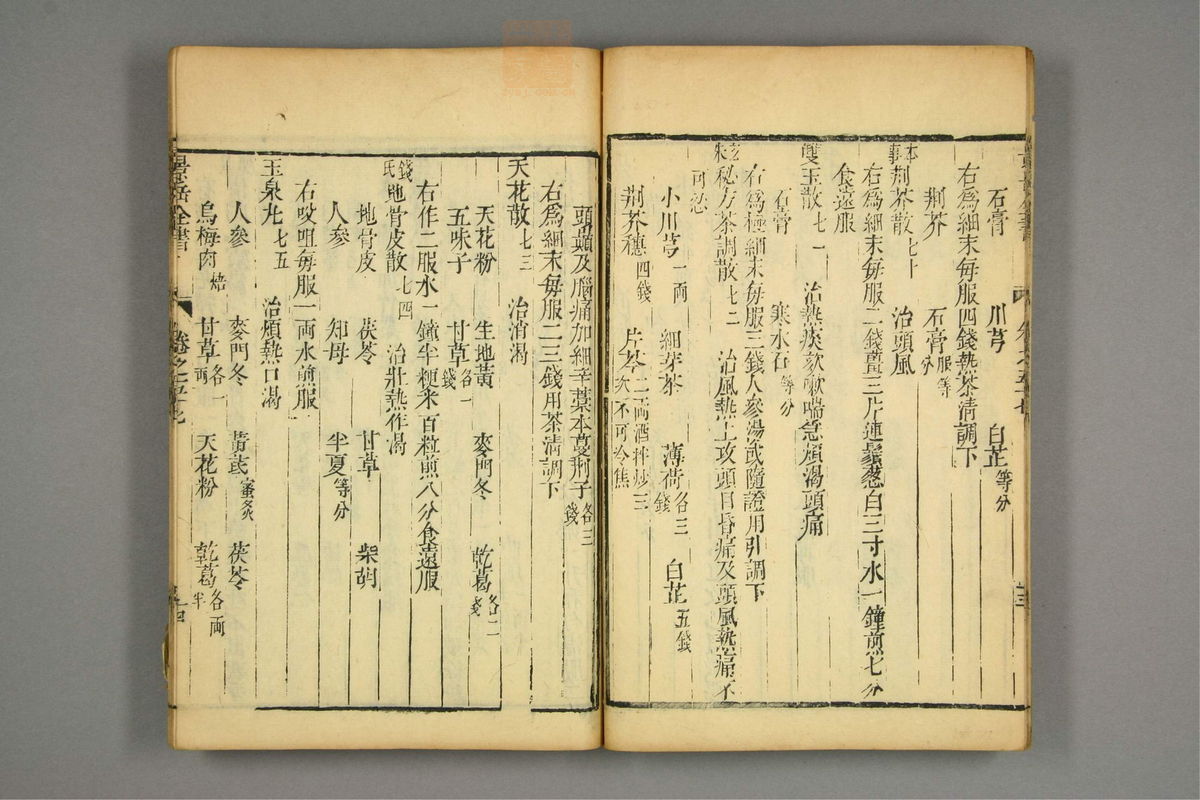 石膏 川芎 白芷等分
右為細末每服四錢熱茶清調下
本事荆芥散七十 治頭風
荆芥 石膏服等分
右為細末每服二錢薑三片連鬚葱白三寸水一鐘煎七分
食遠服
雙玉散七一 治熱痰欬嗽喘急煩渴頭痛
石膏 寒水石等分
右為極細末每服三錢人參湯或隨證用引調下
玄珠秘方茶調散七二 治風熱上攻頭目昏痛及頭風熱痛不
可忍
小川芎一兩 細芽茶 薄荷各三錢 白芷五錢
荆芥穗四錢 片芩二兩酒拌炒三次不可令焦
右為細末每服二三錢用茶清調下
頭巔及腦痛加細辛藁本蔓荆子各三錢
天花散七三 治消渴
天花粉 生地黃 麥門冬 乾葛各二錢
五味子 甘草各一錢
右作二服水一鐘半粳米百粒煎八分食遠服
錢氏地骨皮散七四 治壯熱作渴
地骨皮 茯苓 甘草 柴胡
人參 知母 半夏等分
右㕮咀每服一兩水煎服
玉泉丸七五 治煩熱口渴
人參 麥門冬 黃芪蜜炙 茯苓
烏梅肉焙 甘草各一兩 天花粉 乾葛各兩半
景岳全書
卷之五十七
十四